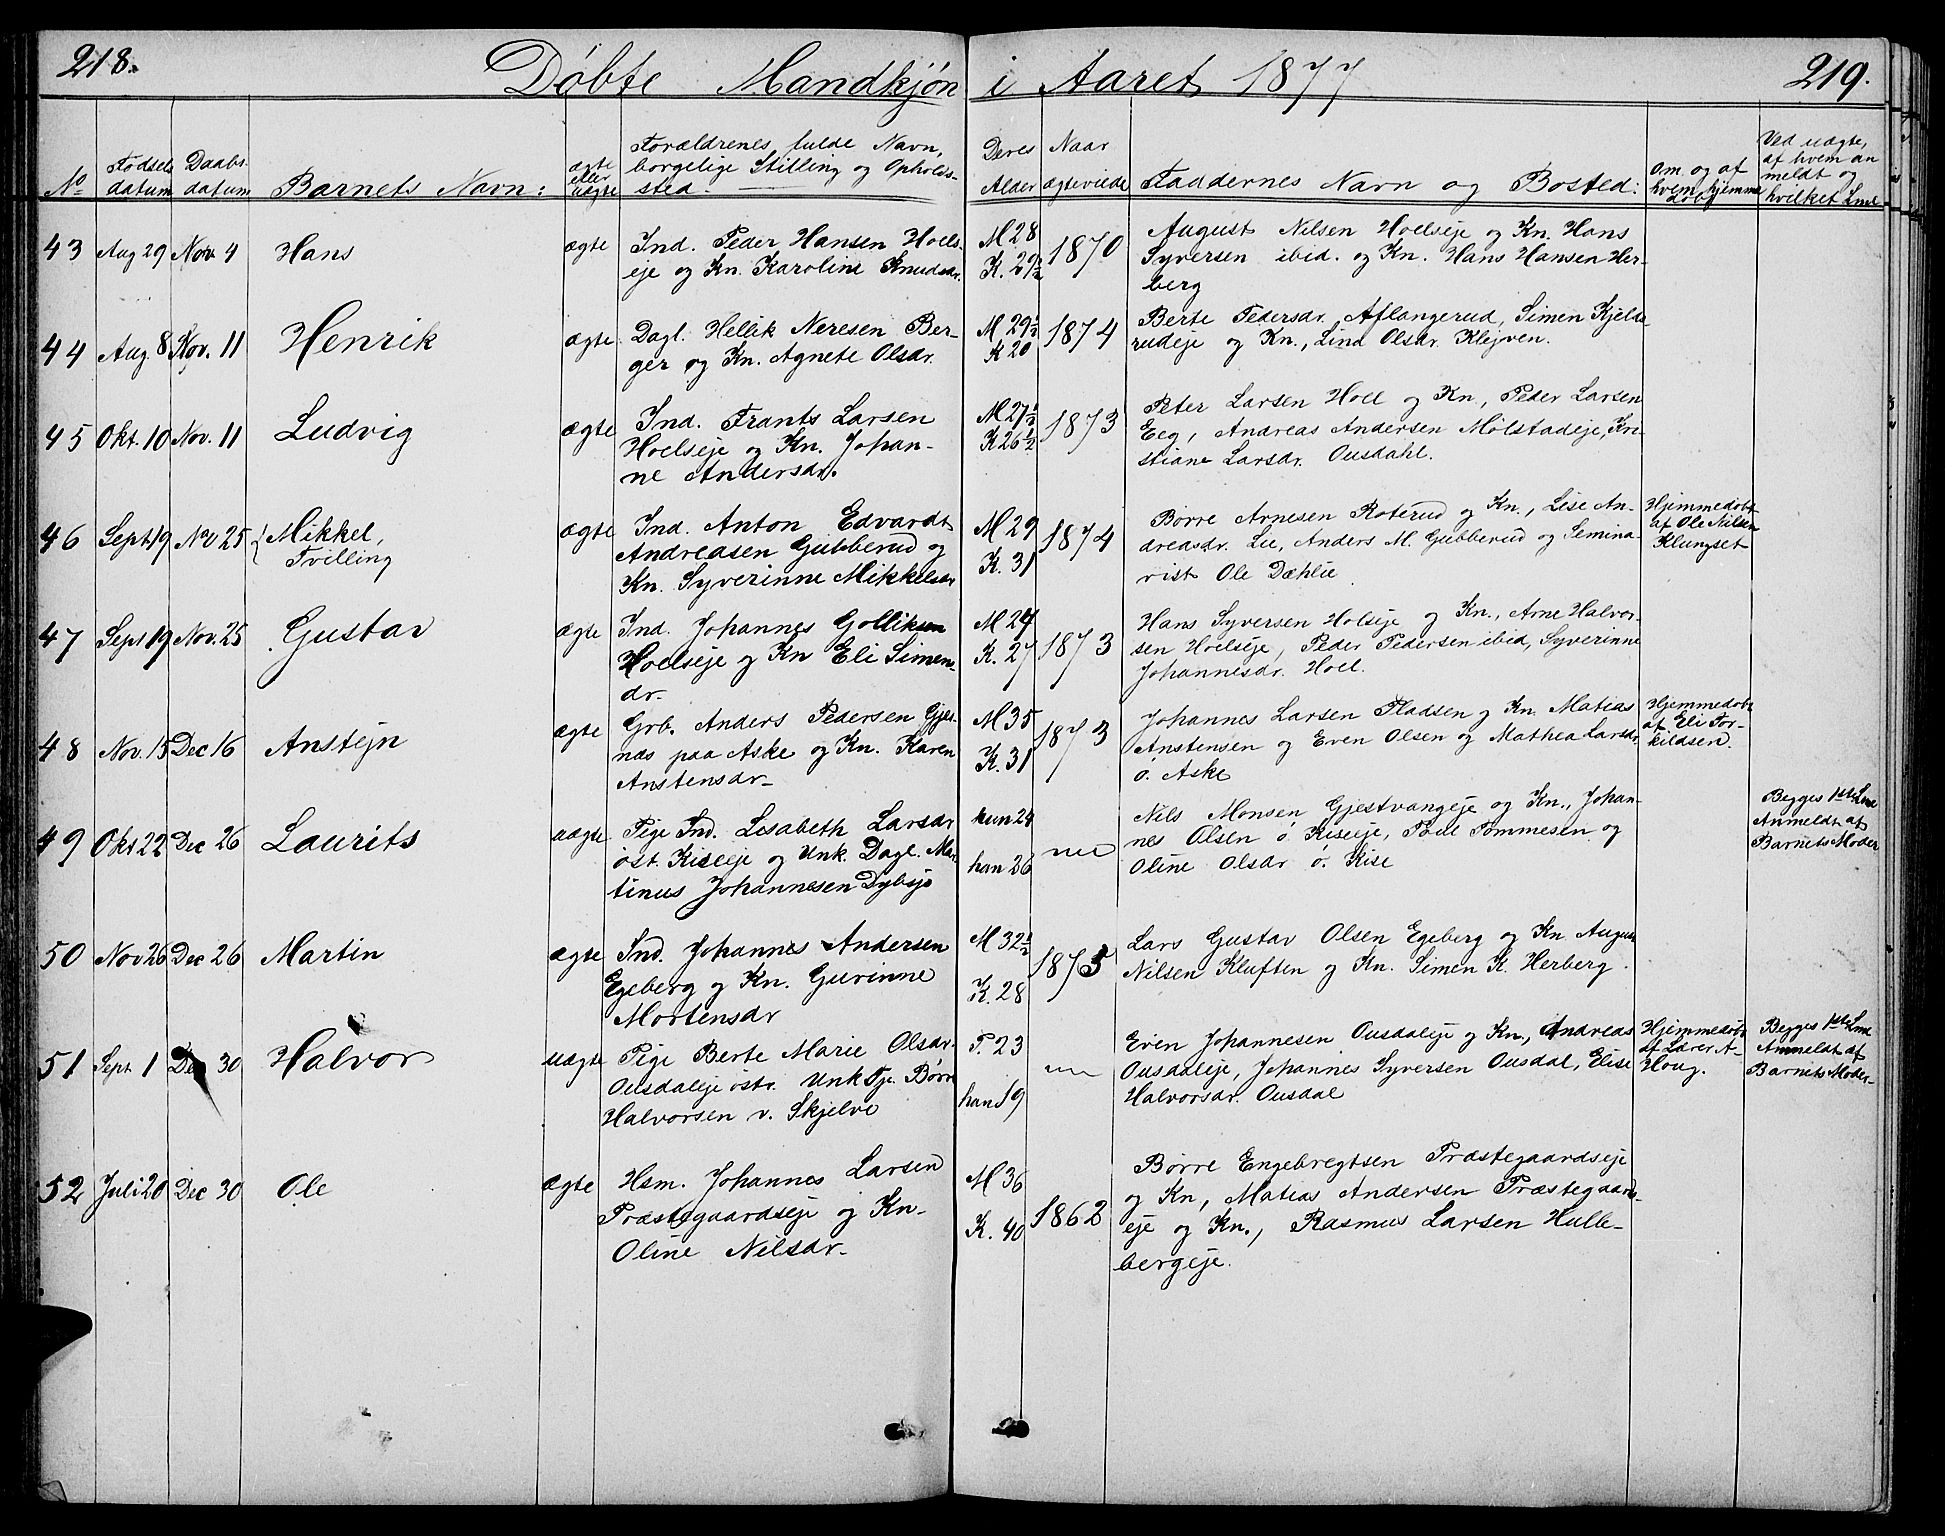 218.
Døbte Mandkjøn i Aaret 1877
219.
No
Fødsels datum
Daabs datum
Barnets Navn:
ægte eller uægte
Forældrenes fulde Navn, borgelige Stilling og Opholdssted
Deres Alder
Naar ægteviede
Faddernes Navn og Bosted:
Om og af hvem hjemme døbt
Ved uægte, af hvem anmeldt og hvilket Lml
43 Aug 29 Nov 4 Hans ægte
Ind. Peder Hansen Hoels-
eje og Kn. Karoline Knudsdr.
M 28
K. 29½
1870
August Nilsen Hoelseje og Kn. Hans
Syversen ibid. og Kn. Hans Hansen Her-
berg
44 Aug. 8 Nov. 11 Henrik ægte
Dagl. Hellik Neresen Ber-
ger og Kn. Agnete Olsdr.
M 29½
K 20
1874
Berte Pedersdr. Aflangerud, Simen Kjelde
rudeje og Kn., Lina Olsdr. Klejven.
45 Okt. 10 Nov. 11 Ludvig ægte
Ind. Frants Larsen
Hoelseje og Kn. Johan-
ne Andersdr.
M 27½
K 26½
1873
Peter Larsen Hoel og Kn, Peder Larsen
Eeg, Andreas Andersen Molstadeje, Kri
stiane Larsdr. Ousdahl.
46 Sept 19 Nov 25 Mikkel,
Tvilling
ægte
Ind. Anton Edvardt
Andreasen Gubberud og
Kn. Syverinne Mikkelsdr
M 29
K. 31
1874
Børre Arnesen Roterud og Kn., Lise An-
dreasdr. Lie, Anders M. Gubberud og Semina-
rist Ole Dæhlie
Hjemmedøbt
af Ole Nilsen
Klungset
47 Sept 19 Nov. 25 Gustav ægte
Ind. Johannes Golliksen
Hoelseje og Kn Eli Simens-
dr.
M 24
K. 27
1873
Hans Syversen Holseje og Kn., Arne Halvor-
sen Hoelseje, Peder Pedersen ibid, Syverinne
Johannesdr. Hoel.
48 Nov. 15 Dec 16 Anstejn ægte
Grb. Anders Pedersen Gjes-
nas paa Aske og Kn. Karen
Anstensdr.
M 35
K. 31
1873
Johannes Larsen Pladsen og Kn. Matias
Anstensen og Even Olsen og Mathea Larsdr.
ö. Aske
Hjemmedøbt
af Eli Tor-
kildsen.
49 Okt 22 Dec 26 Laurits uægte
Pige Ind. Lisabeth Larsdr
öst. Kiseeje og Unk. Dagl. Mar
tinus Johannesen Dybsjø
hun 24
han 26
Nils Monsen Gjestvangeje og Kn., Johan-
nes Olsen ö. Kiseeje, Poul Tommesen og
Oline Olsdr ö. Kise
Begges 1ste Lml
Anmeldt af
Barnets Moder
50 Nov 26 Dec 26 Martin ægte
Ind. Johannes Andersen
Egeberg og Kn. Gurinne
Mortensdr
M 32½
K. 28
1875
Lars Gustav Olsen Egeberg og Kn August
Nilsen Kluften og Kn. Simen K. Herberg.
51 Sept. 1 Dec 30 Halvor uægte
Pige Berte Marie Olsdr.
Ousdaleje östr. Unk Tje. Børre
Halvorsen v. Skjelve
P. 23
han 19
Even Johannesen Ousdaleje og Kn., Andreas
Ousdaleje, Johannes Syversen Ousdal, Elise
Halvorsdr. Ousdal
Hjemmedøbt
af Lærer A-
Houg.
Begges 1ste Lml
Anmeldt af
Barnets Moder-
52 Juli 20 Dec 30 Ole ægte
Hsm. Johannes Larsen
Præstegaardseje og Kn-
Oline Nilsdr.
M 36
K. 40
1862
Børre Engebregtsen Præstegaardseje
og Kn, Matias Andersen Præstegaards-
eje og Kn., Rasmus Larsen Hulle-
bergeje.